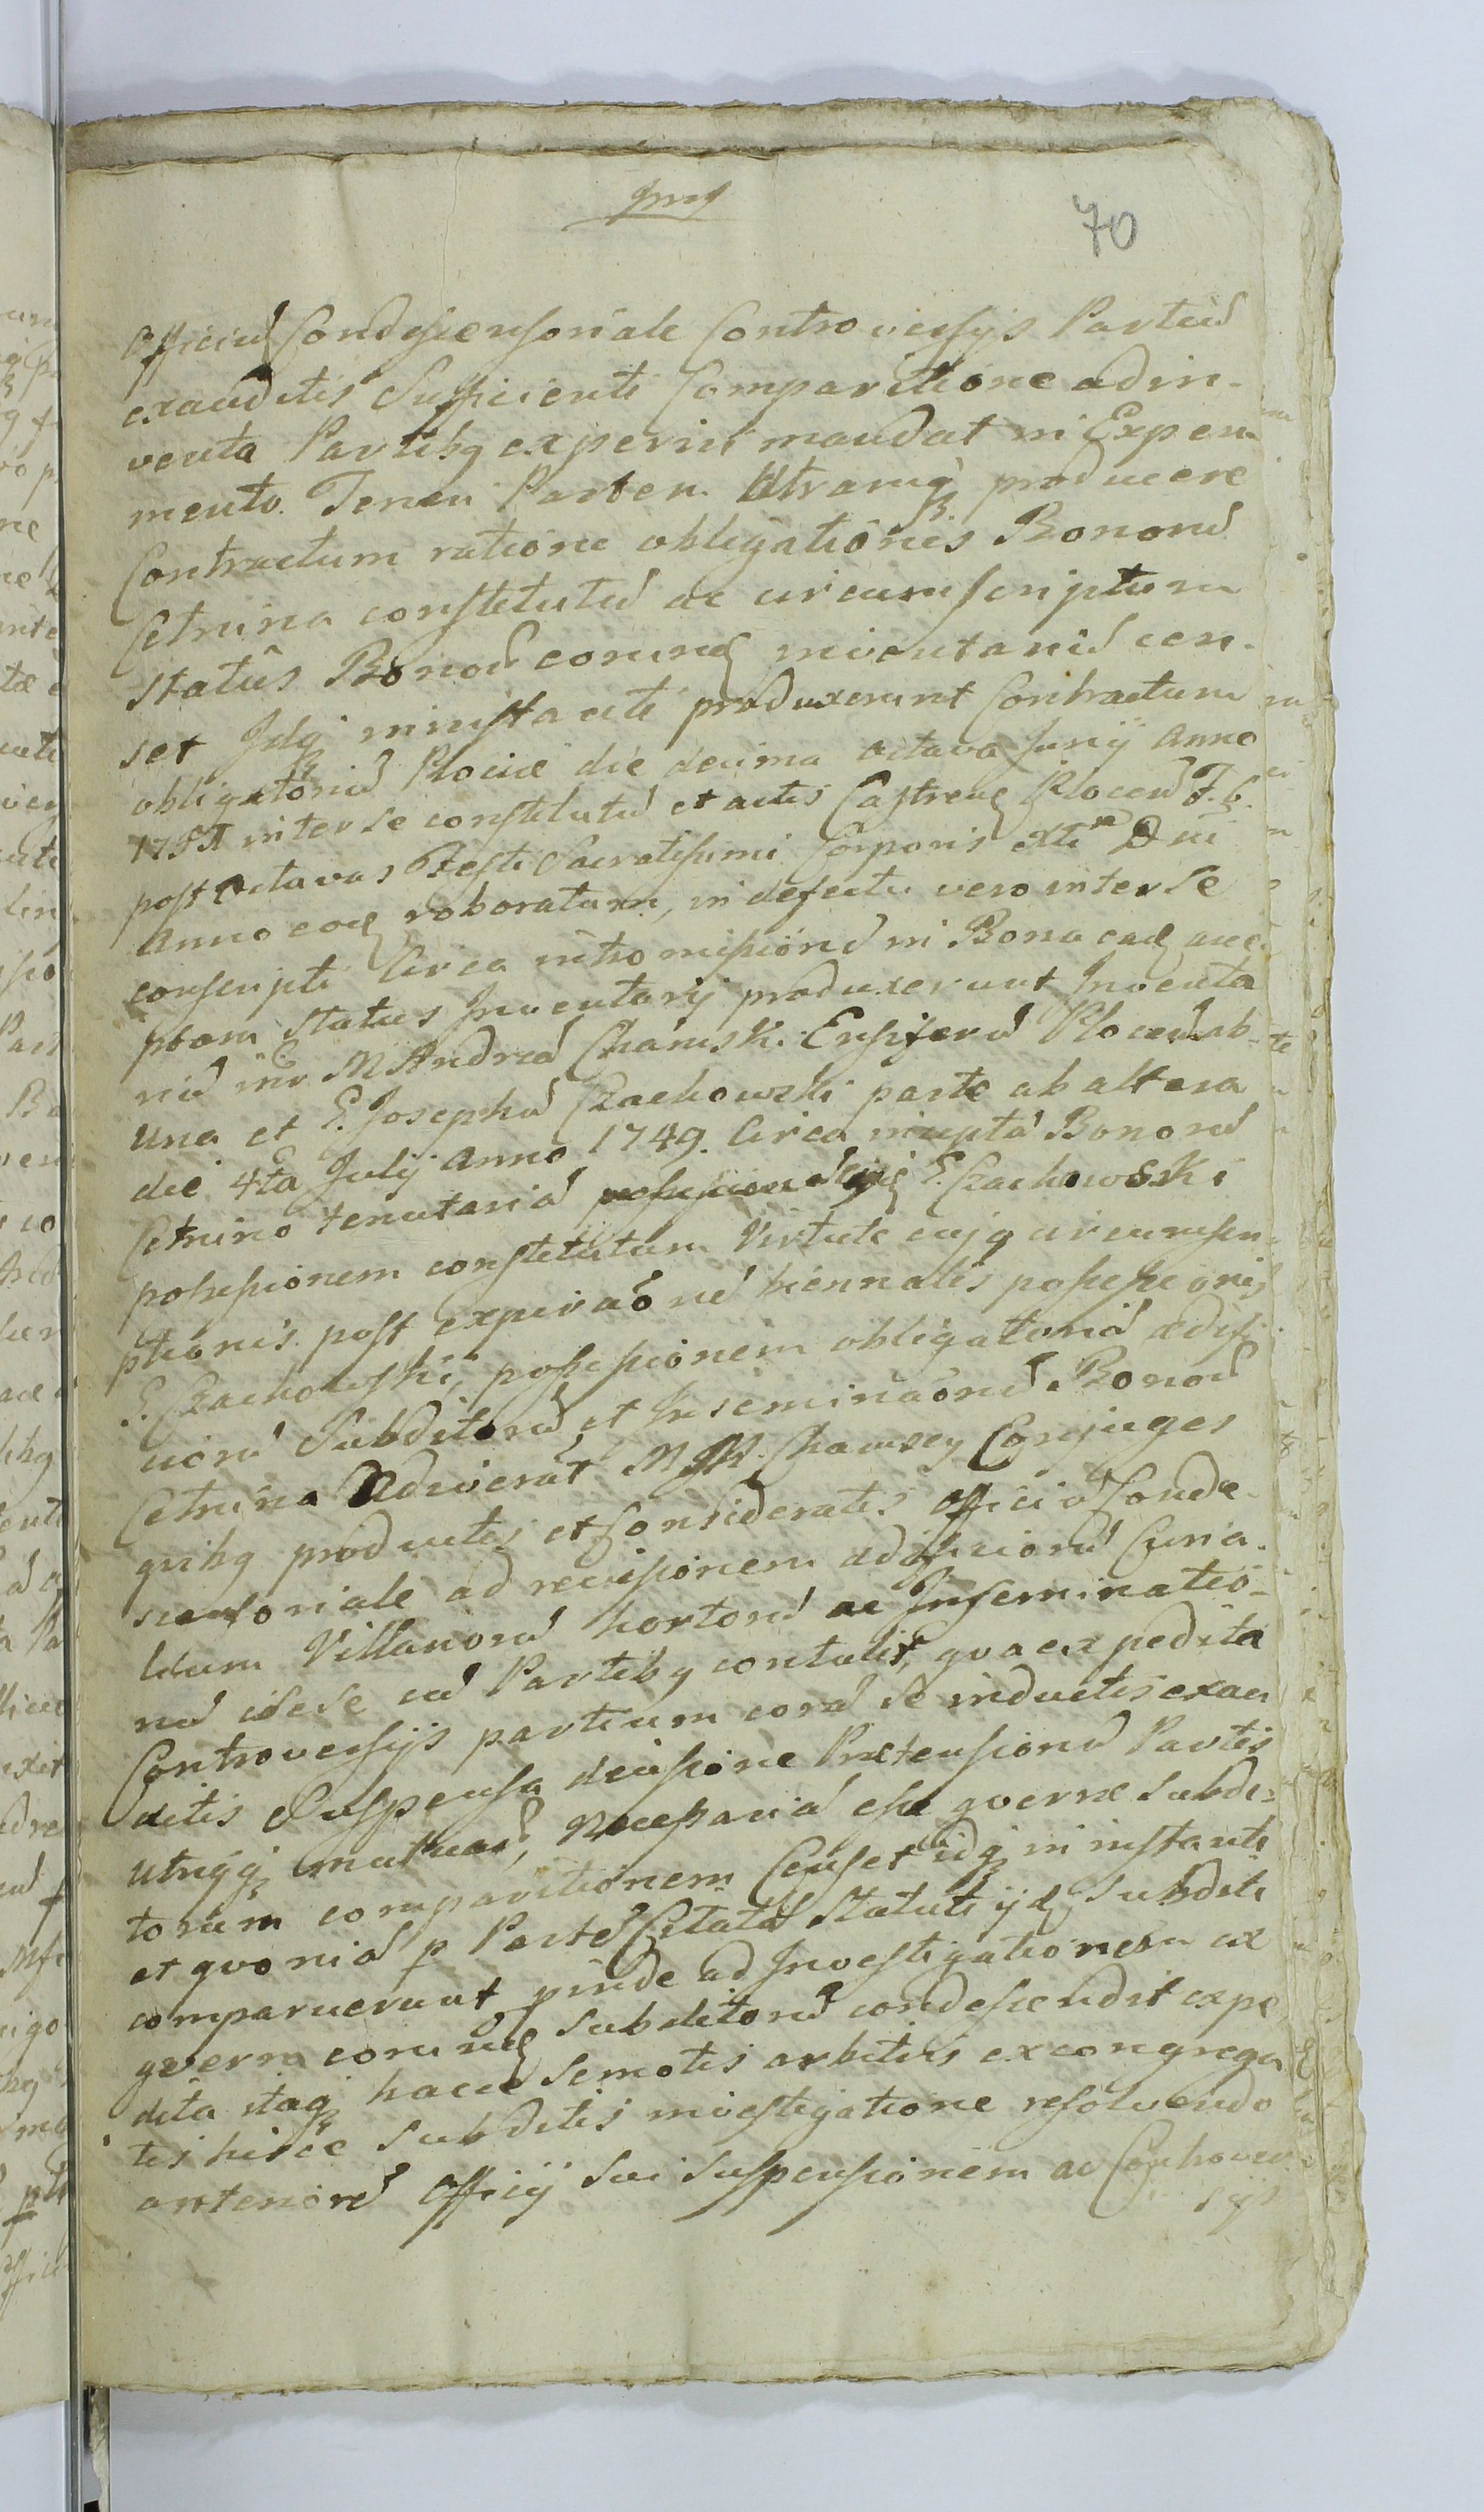 70
Officiu Condescensoriale Controversijs Partiu
exauditis Sufficienti Comparitione adin-
venta Partibq experiri mandat in Experi-
mento. Teneri Partem Utramq producere
Contractum ratione obligationis Bonoru
Cetnina constitutu ac circumscriptum
Status Bonoru eorund inventariu cen-
set Idq in instanti produxerunt Contractum
obligatoriu Plociæ die decima octava Junij Anno
inter se constitutu et actis Castren Plocen F. 6.
post Octavas Festi Sacratissimi Corporis Xti Dni
Anno eod roboratum, in defectu vero inter se
conscripti Circa intromissione in Bona ead
Status Inventarij produxerunt Inventa
riu inter M Andrea Chamski Ensiferu Plocen ab
una et G. Josephu Czachowski parte ab altera
die 4ta Julij Anno 1749. Circa incepta Bonoru
Cetnino tenutaria G. Czachowski
possessionem constitutum Virtute cujq circumscri-
ptionis post expiraone biennalis possessionis
G. Czachowski, possessionem obligatoria ædifi
cioru Subditoru et Inseminaonu Bonoru
Cetnina Adiverat M M. Chamscy Conjuges
quibq productis et Consideratis Officiu Conde-
scensoriale ad revisionem ædificioru Curia-
lium Villanoru hortoru ac Inseminatio-
nu idese cu Partibq contulit, qva expedita
Controversijs partium cora se inductis exau
ditis Suspensa decisione Prætensionu Partis
Utriusq mutuaru, necessaria esse qverræ subdi-
torum comparitionem Censet idq in instanti
et qvonia p Parte Citata Statuti ijd Subditi
comparuerunt pinde ad Investigationem ex
qverra eorund Subditoru condescendit expe
dita itaq hacce semotis arbitris excongrega
tis hisce Subditis investigatione resolvendo
anteriore Officij sui suspensionem ac Controver
sijs